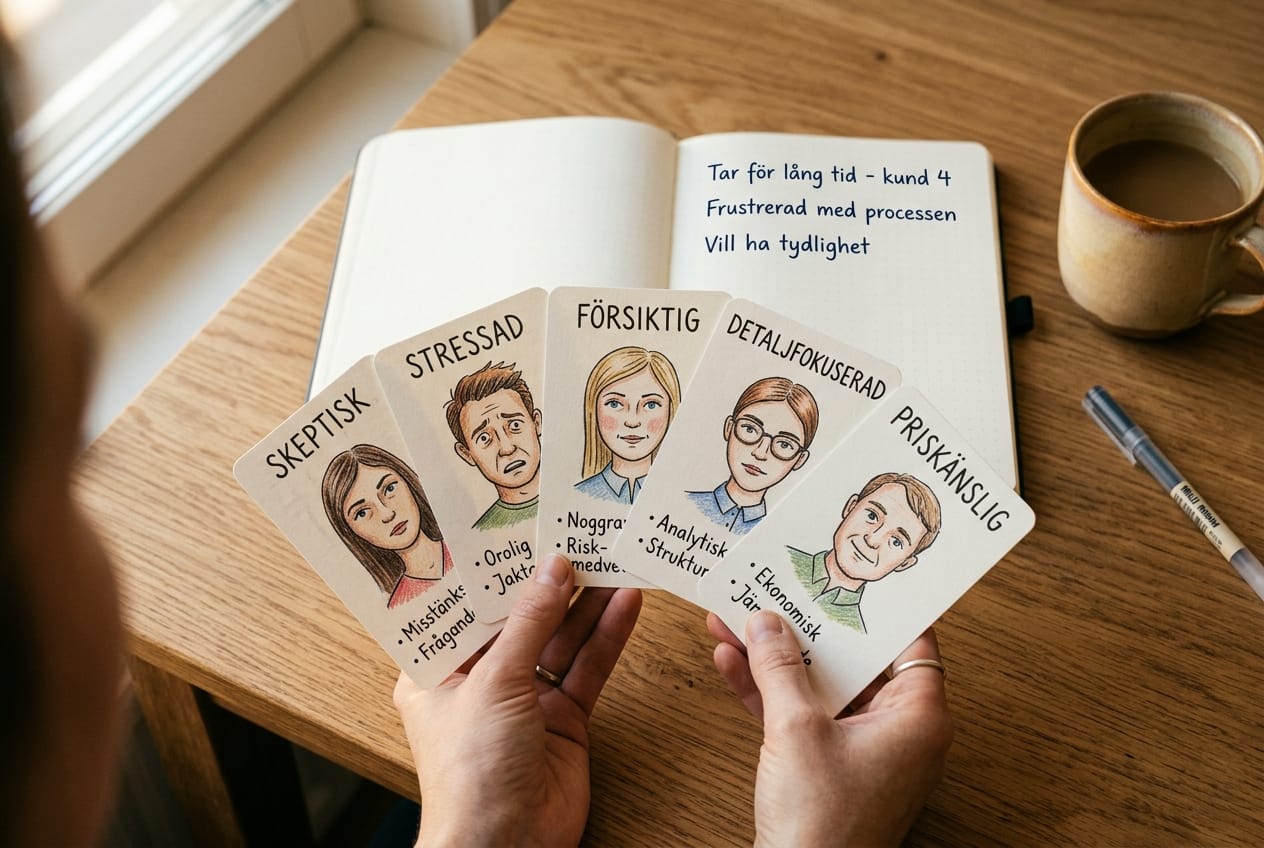 Tar för lång tid - kund 4
Frustrerad med processen
Vill ha tydlighet
SKEPTISK
• Misstänks
• Frågand
STRESSAD
• Orolig
• Jakt
FÖRSIKTIG
• Noggra
• Risk-
medve
DETALJFOKUSERAD
• Analytisk
• Struktur
PRISKÄNSLIG
• Ekonomisk
• Jäm